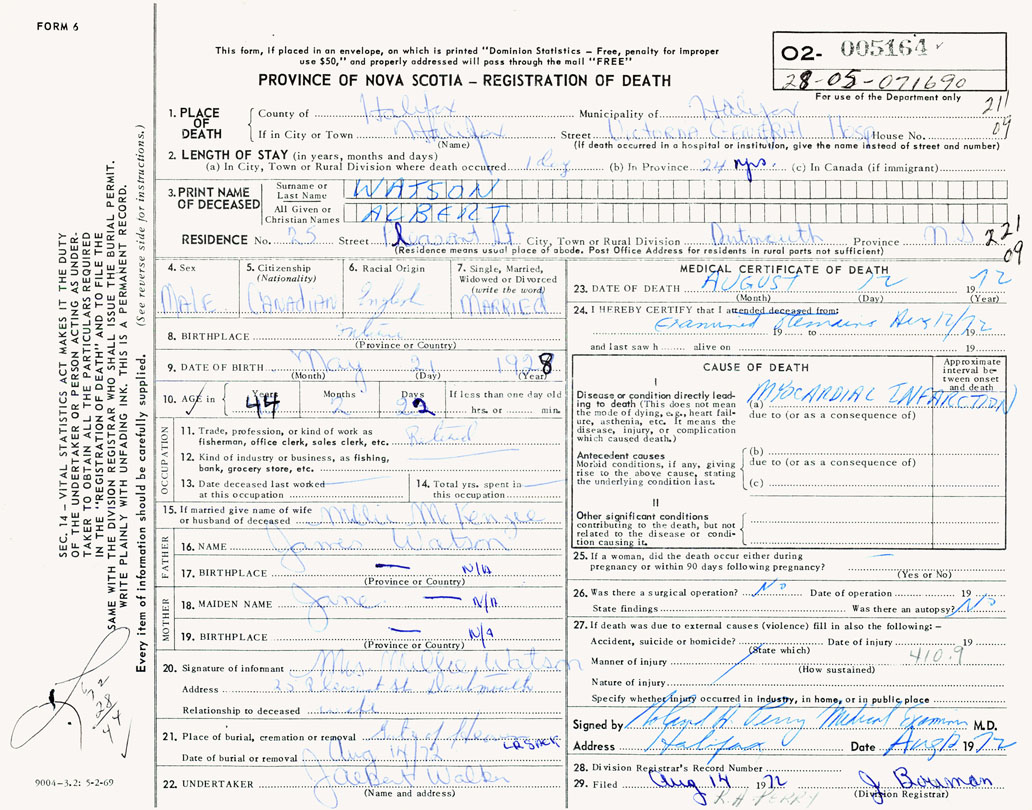 FORM 6
This form, if placed in an envelope, on which is printed "Dominion Statistics – Free, penalty for improper
use $50," and properly addressed will pass through the mail "FREE"
PROVINCE OF NOVA SCOTIA – REGISTRATION OF DEATH
02- 005164
28-05-071690
For use of the Department only
211
09
SEC. 14 – VITAL STATISTICS ACT MAKES IT THE DUTY
OF THE UNDERTAKER OR PERSON ACTING AS UNDER-
TAKER TO OBTAIN ALL THE PARTICULARS REQUIRED
IN THE "REGISTRATION OF DEATH" AND TO FILE THE
SAME WITH THE DIVISION REGISTRAR WHO SHALL ISSUE THE BURIAL PERMIT.
WRITE PLAINLY WITH UNFADING INK. THIS IS A PERMANENT RECORD.
Every item of information should be carefully supplied. (See reverse side for instructions.)
1. PLACE OF DEATH
County of Halifax Municipality of Halifax
If in City or Town Halifax Street Victoria General Hosp House No.
(Name) (If death occurred in a hospital or institution, give the name instead of street and number)
2. LENGTH OF STAY (in years, months and days)
(a) In City, Town or Rural Division where death occurred 1 day (b) In Province 24 yrs. (c) In Canada (if immigrant)
3. PRINT NAME OF DECEASED
Surname or Last Name WATSON
All Given or Christian Names ALBERT
RESIDENCE No. 25 Street Pleasant St City, Town or Rural Division Dartmouth Province N S
221
09
(Residence means usual place of abode. Post Office Address for residents in rural parts not sufficient)
4. Sex MALE
5. Citizenship (Nationality) CANADIAN
6. Racial Origin English
7. Single, Married, Widowed or Divorced (write the word) MARRIED
8. BIRTHPLACE
(Province or Country)
9. DATE OF BIRTH May 21 1928
(Month) (Day) (Year)
10. AGE in Years 44 Months 2 Days 22 If less than one day old hrs. or min.
OCCUPATION
11. Trade, profession, or kind of work as fisherman, office clerk, sales clerk, etc. Retired
12. Kind of industry or business, as fishing, bank, grocery store, etc.
13. Date deceased last worked at this occupation
14. Total yrs. spent in this occupation
15. If married give name of wife or husband of deceased Millie McKenzie
FATHER
16. NAME James Watson
17. BIRTHPLACE — N/A
(Province or Country)
MOTHER
18. MAIDEN NAME Jane — N/A
19. BIRTHPLACE — N/A
(Province or Country)
20. Signature of informant Mrs Millie Watson
Address 25 Pleasant St. Dartmouth
Relationship to deceased
21. Place of burial, cremation or removal Gate of Heaven
Date of burial or removal Aug 14/72
22. UNDERTAKER J Albert Walker
(Name and address)
MEDICAL CERTIFICATE OF DEATH
23. DATE OF DEATH AUGUST 12 1972
(Month) (Day) (Year)
24. I HEREBY CERTIFY that I attended deceased from:
Examined Remains Aug 12/72
19 to 19
and last saw h alive on 19
CAUSE OF DEATH
Approximate interval between onset and death
I
Disease or condition directly leading to death (This does not mean the mode of dying, e.g., heart failure, asthenia, etc. It means the disease, injury, or complication which caused death.)
(a) MYOCARDIAL INFARCTION
due to (or as a consequence of)
Antecedent causes
Morbid conditions, if any, giving rise to the above cause, stating the underlying condition last.
(b)
due to (or as a consequence of)
(c)
II
Other significant conditions contributing to the death, but not related to the disease or condition causing it.
25. If a woman, did the death occur either during
pregnancy or within 90 days following pregnancy? —
(Yes or No)
26. Was there a surgical operation? No Date of operation 19
State findings Was there an autopsy? No
27. If death was due to external causes (violence) fill in also the following: –
Accident, suicide or homicide? Date of injury 19
(State which)
410.9
Manner of injury
(How sustained)
Nature of injury
Specify whether injury occurred in industry, in home, or in public place
Signed by Roland A. Perry Medical Examiner M.D.
Address Halifax Date Aug 12 1972
28. Division Registrar's Record Number
29. Filed Aug 14 1972 J Bowman
R.A. PERRY (Division Registrar)
672
28
44
9004-3.2: 5-2-69